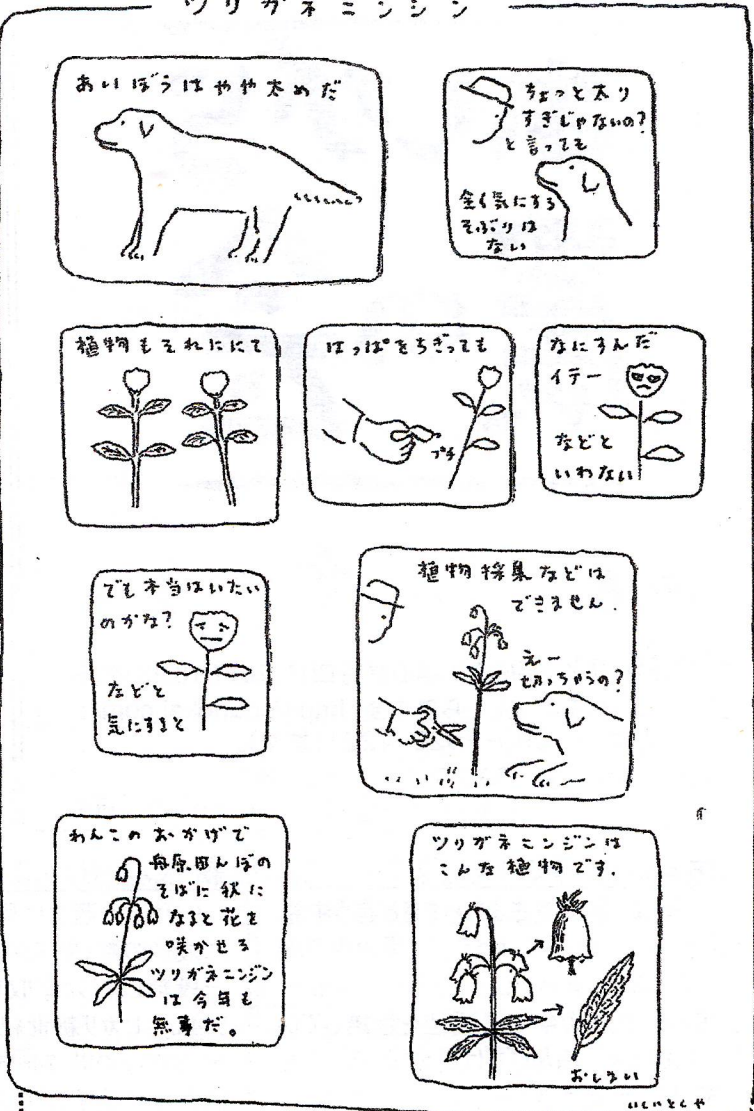 ツリガネニンジン
あいぼうはやや太めだ
ちょっと太り
すぎじゃないの?
と言っても
全く気にする
そぶりは
ない
植物もそれににて
はっぱをちぎっても
プチ
なにすんだ
イテー
などと
いわない
でも本当はいたい
のかな?
などと
気にすると
植物採集などは
できません.
えー
切っちゃうの?
わんこのおかげで
舟原田んぼの
そばに秋に
なると花を
咲かせる
ツリガネニンジン
は今年も
無事だ。
ツリガネニンジンは
こんな植物です.
おしまい
いしいとしや